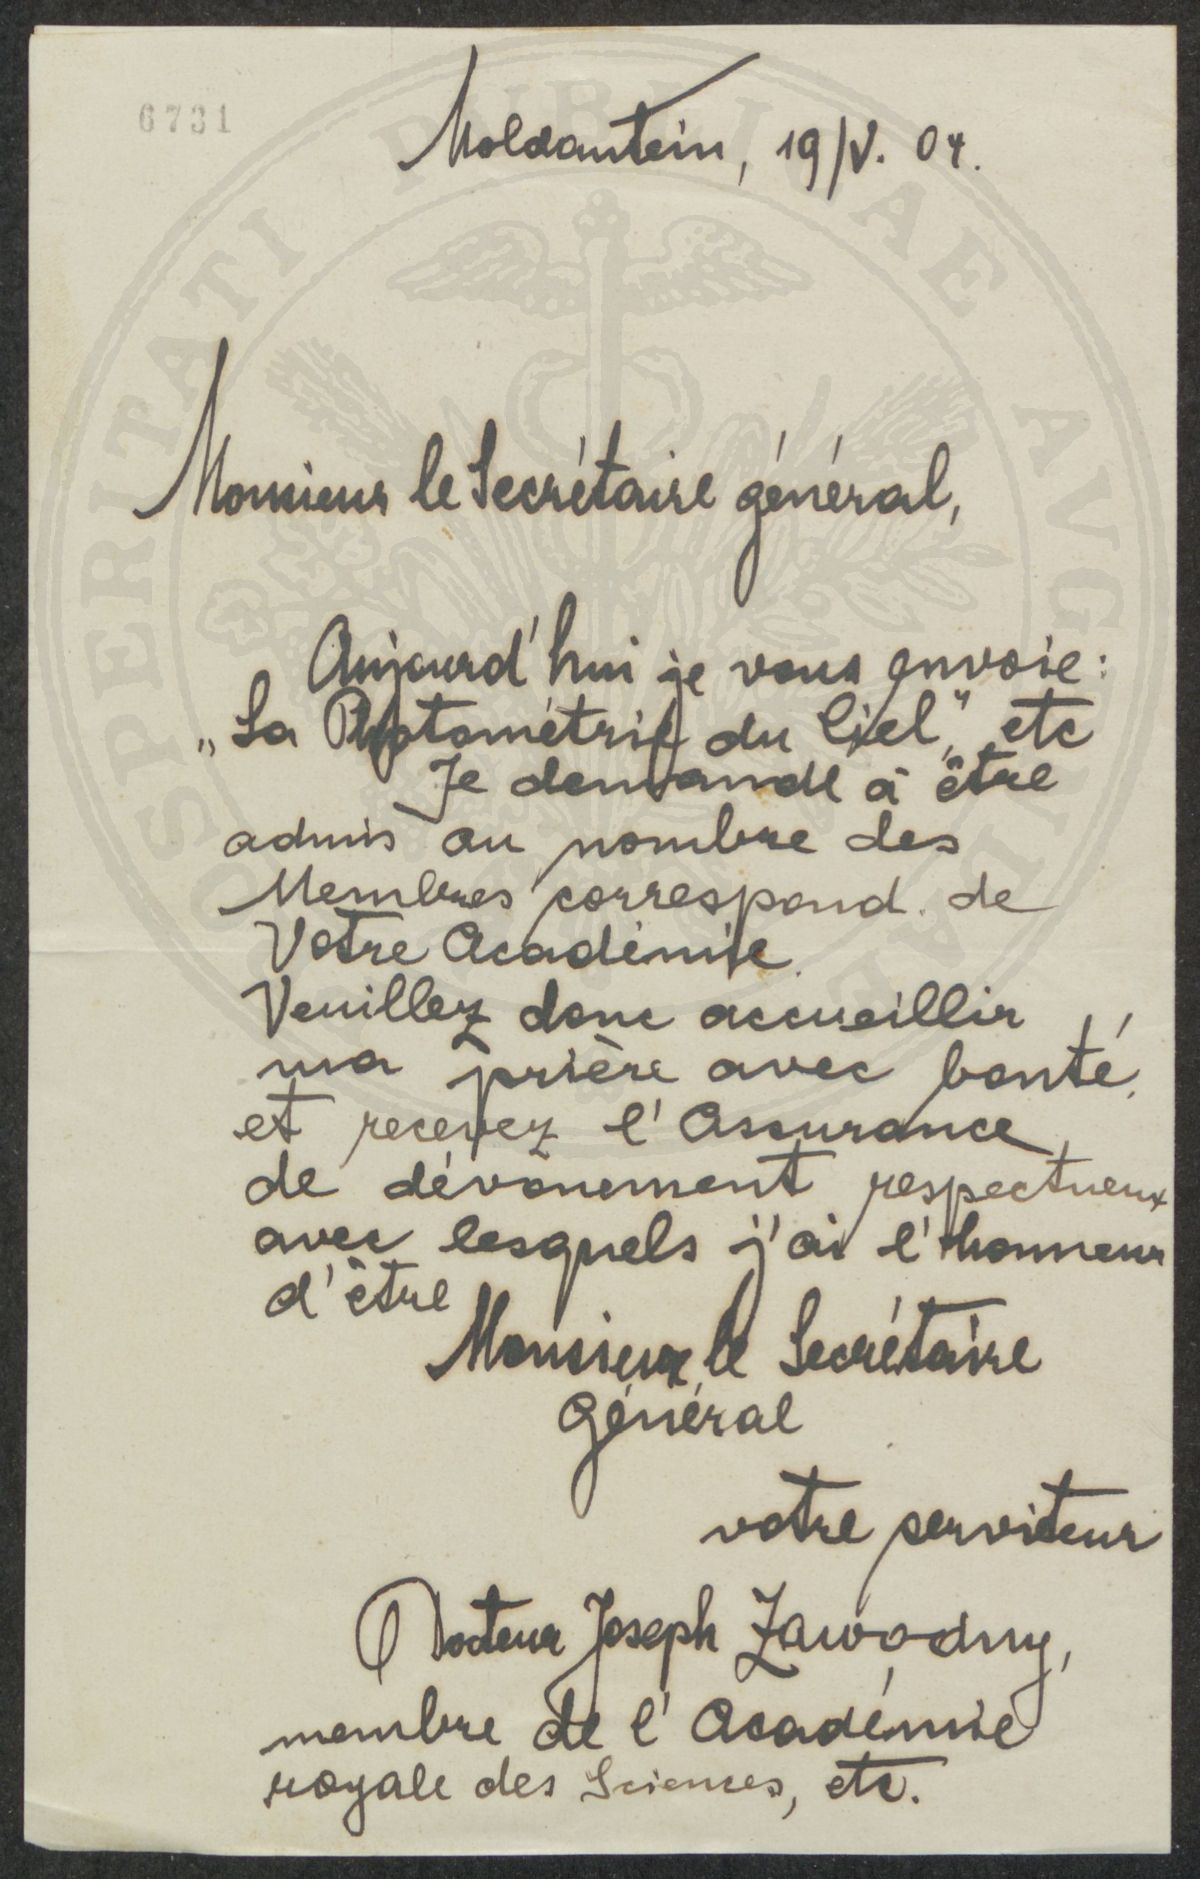 6731
Moldautein, 19/V. 04.
Monsieur le Secrétaire général,
Aujourd'hui je vous envoie:
„La Photométrie du Ciel", etc
Je demande à être
admis au nombre des
Membres correspond. de
Votre Académie.
Veuillez donc accueillir
ma prière avec bonté,
et recevez l'Assurance
de dévouement respectueux
avec lesquels j'ai l'honneur
d'être
Monsieur le Secrétaire
Général
votre serviteur
Docteur Joseph Zawodny,
membre de l'Académie
royale des Sciences, etc.